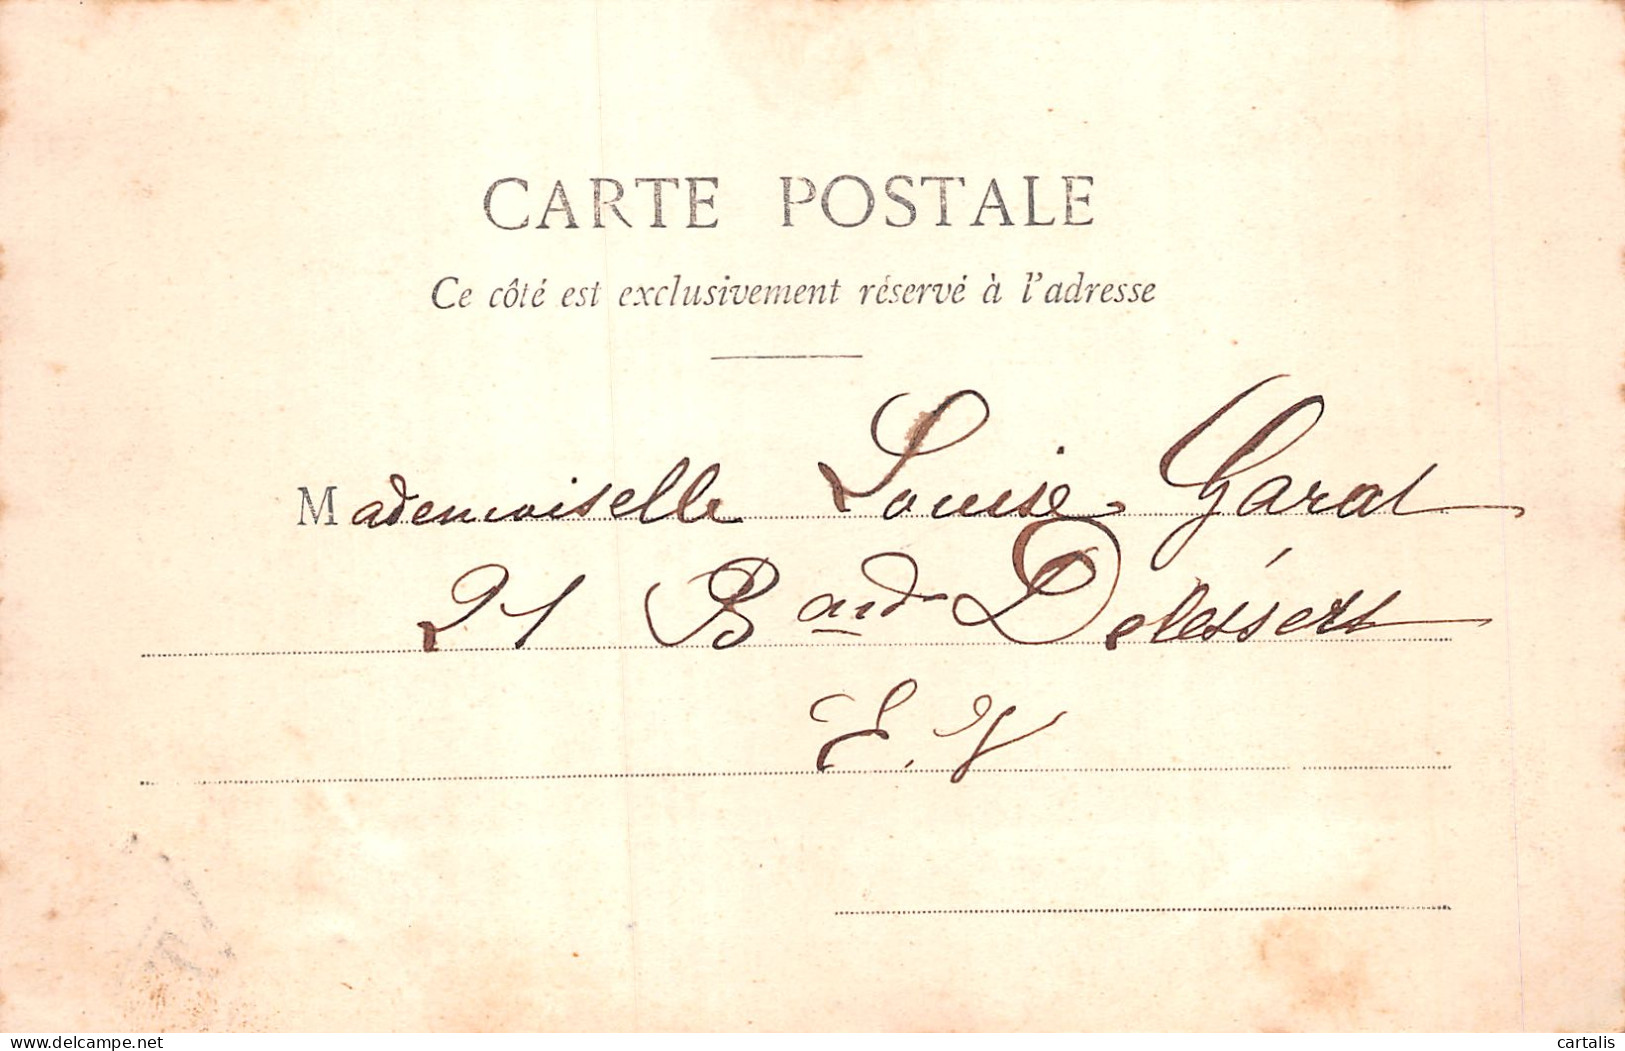 CARTE POSTALE
Ce côté est exclusivement réservé à l'adresse
Mademoiselle Louise Garat
21 Bard Delessert
E. V
delcampe.net
cartalis